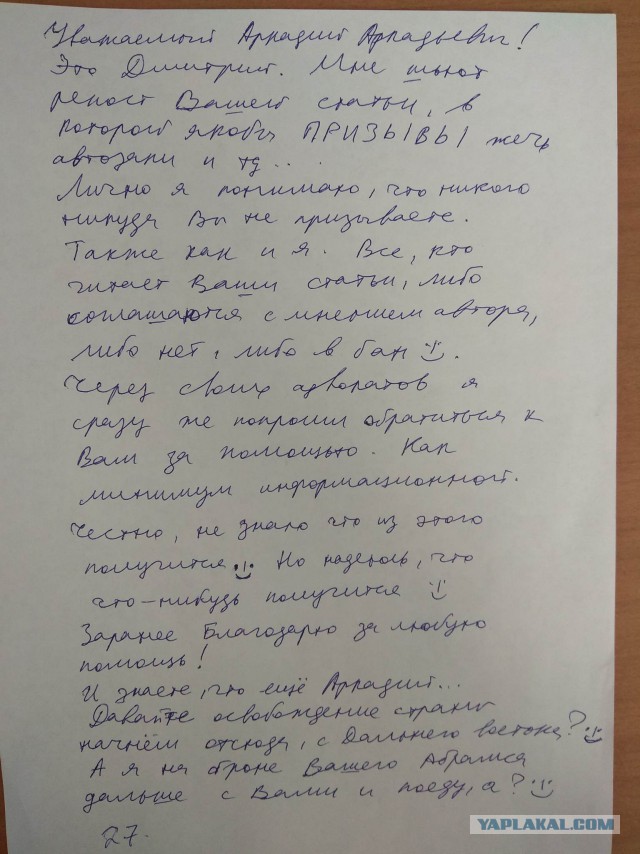 Уважаемый Аркадий Аркадьевич!
Это Дмитрий. Мне шьют
репост Вашей статьи, в
которой якобы ПРИЗЫВЫ жечь
автозаки и тд...
Лично я понимаю, что никого
никуда Вы не призываете.
Также как и я. Все, кто
читает Ваши статьи, либо
соглашаются с мнением автора,
либо нет, либо в бан :).
Через своих адвокатов я
сразу же попросил обратиться к
Вам за помощью. Как
минимум информационной.
Честно, не знаю что из этого
получится :) Но надеюсь, что
что-нибудь получится :)
Заранее Благодарю за любую
помощь!
И знаете, что ещё Аркадий...
Давайте освобождение страны
начнём отсюда, с Дальнего востока? :)
А я на броне Вашего Абрамса
дальше с Вами и поеду, а? :)
27.
YAPLAKAL.COM